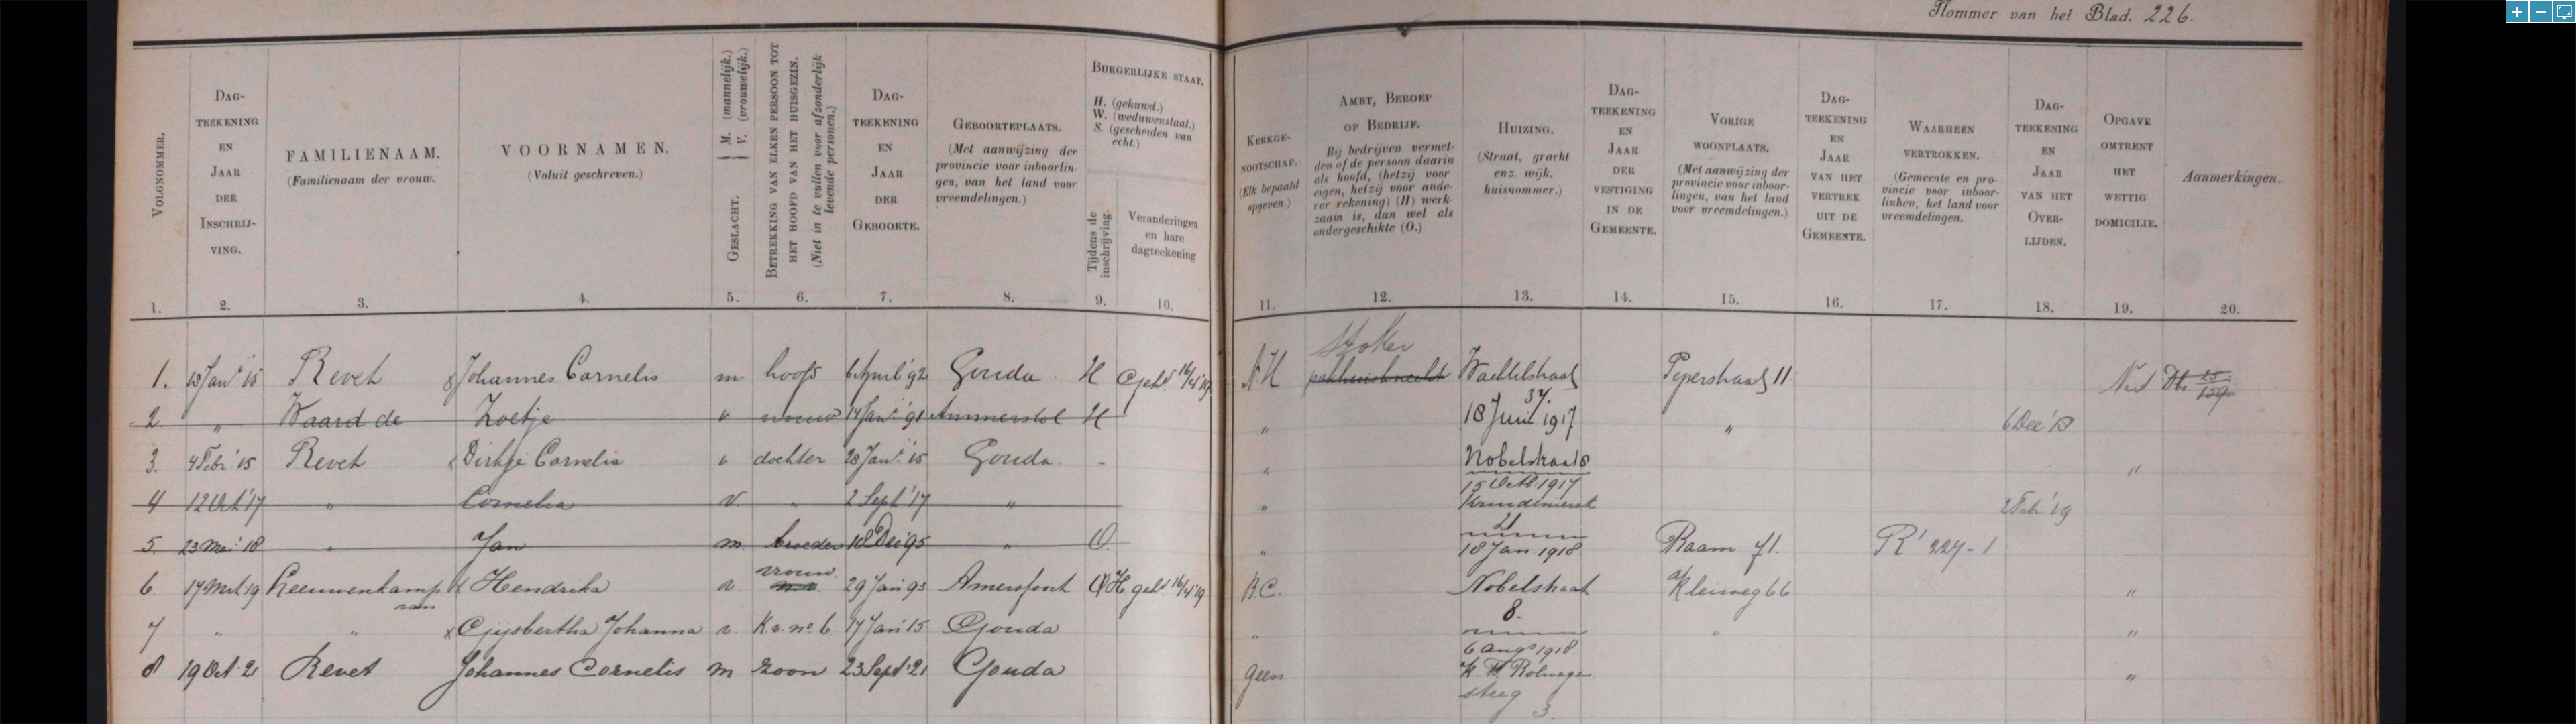 Nommer van het Blad. 226.
VOLGNOMMER.
DAG-
TEEKENING
EN
JAAR
DER
INSCHRIJ-
VING.
FAMILIENAAM.
(Familienaam der vrouw.
VOORNAMEN.
(Voluit geschreven.)
GESLACHT. { M. (mannelijk.)
V. (vrouwelijk.)
BETREKKING VAN ELKEN PERSOON TOT
HET HOOFD VAN HET HUISGEZIN.
(Niet in te vullen voor afzonderlijk
levende personen.)
DAG-
TEEKENING
EN
JAAR
DER
GEBOORTE.
GEBOORTEPLAATS.
(Met aanwijzing der
provincie voor inboorlin-
gen, van het land voor
vreemdelingen.)
BURGERLIJKE STAAT.
H. (gehuwd.)
W. (weduwenstaat.)
S. (gescheiden van
echt.)
Tijdens de
inschrijving.
Veranderingen
en hare
dagteekening
KERKGE-
NOOTSCHAP.
(Elk bepaald
opgeven.)
AMBT, BEROEP
OF BEDRIJF.
Bij bedrijven vermel-
den of de persoon daarin
als hoofd, (hetzij voor
eigen, hetzij voor ande-
rer rekening) (H) werk-
zaam is, dan wel als
ondergeschikte (O.)
HUIZING.
(Straat, gracht
enz. wijk,
huisnommer.)
DAG-
TEEKENING
EN
JAAR
DER
VESTIGING
IN DE
GEMEENTE.
VORIGE
WOONPLAATS.
(Met aanwijzing der
provincie voor inboor-
lingen, van het land
voor vreemdelingen.)
DAG-
TEEKENING
EN
JAAR
VAN HET
VERTREK
UIT DE
GEMEENTE.
WAARHEEN
VERTROKKEN.
(Gemeente en pro-
vincie voor inboor-
linhen, het land voor
vreemdelingen.
DAG-
TEEKENING
EN
JAAR
VAN HET
OVER-
LIJDEN.
OPGAVE
OMTRENT
HET
WETTIG
DOMICILIE.
Aanmerkingen.
1. 2. 3. 4. 5. 6. 7. 8. 9. 10. 11. 12. 13. 14. 15. 16. 17. 18. 19. 20.
stoker
1. 13 Jan' 15 Revet Johannes Cornelis m hoofd 6 April '92 Gouda. H Geh. 16/4 '19 NH pakhuisknecht Wachtelstraat Peperstraat 11. Ned
37.
2. " Waard de Zoetje v vrouw 14 Jan' '91 Ammerstol H " 18 Juni 1917 " 6 Dec '18
3. 4 Febr. '15 Revet Dirkje Cornelia v dochter 28 Jan' '15 Gouda. - " Nobelstraat 8 "
15 Octb. 1917
4 12 Oct '17 " Cornelia v. " 2 Sept '17 " " 2 Feb '19
21
5. 23 Mei '18 " Jan m. broeder 18 Dec '95 " O. " 18 Jan 1918 Raam 71. R' 227-1
vrouw.
6. 17 Mrt 19 Leeuwenkamp Hendrika v. 29 Jan 93 Amersfoort O H geh. 16/4 '19 R.C. Nobelstraat a/ Kleiweg 66 "
van
8.
7 " " Gijsbertha Johanna v. K v. no 6 17 Jan '15 Gouda " " "
6 Aug 1918
8 19 Oct. 21 Revet Johannes Cornelis m zoon 23 Sept '21 Gouda geen "
steeg
3.